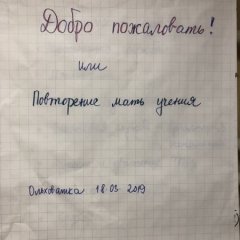 Добро пожаловать!
или
Повторение мать учения
Ольховатка 18.03 2019